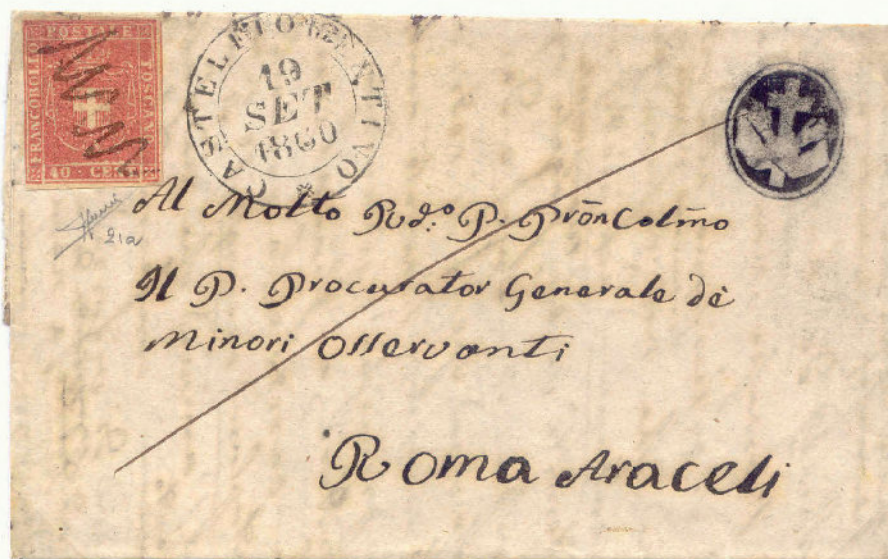 FRANCOBOLLO POSTALE TOSCANO
40 CENT
CASTELFIORENTINO
19
SET
1860
21a
Al Molto Rdo. P. Prõn Colmo
Il P. Procurator Generale de
Minori Osservanti
Roma Araceli